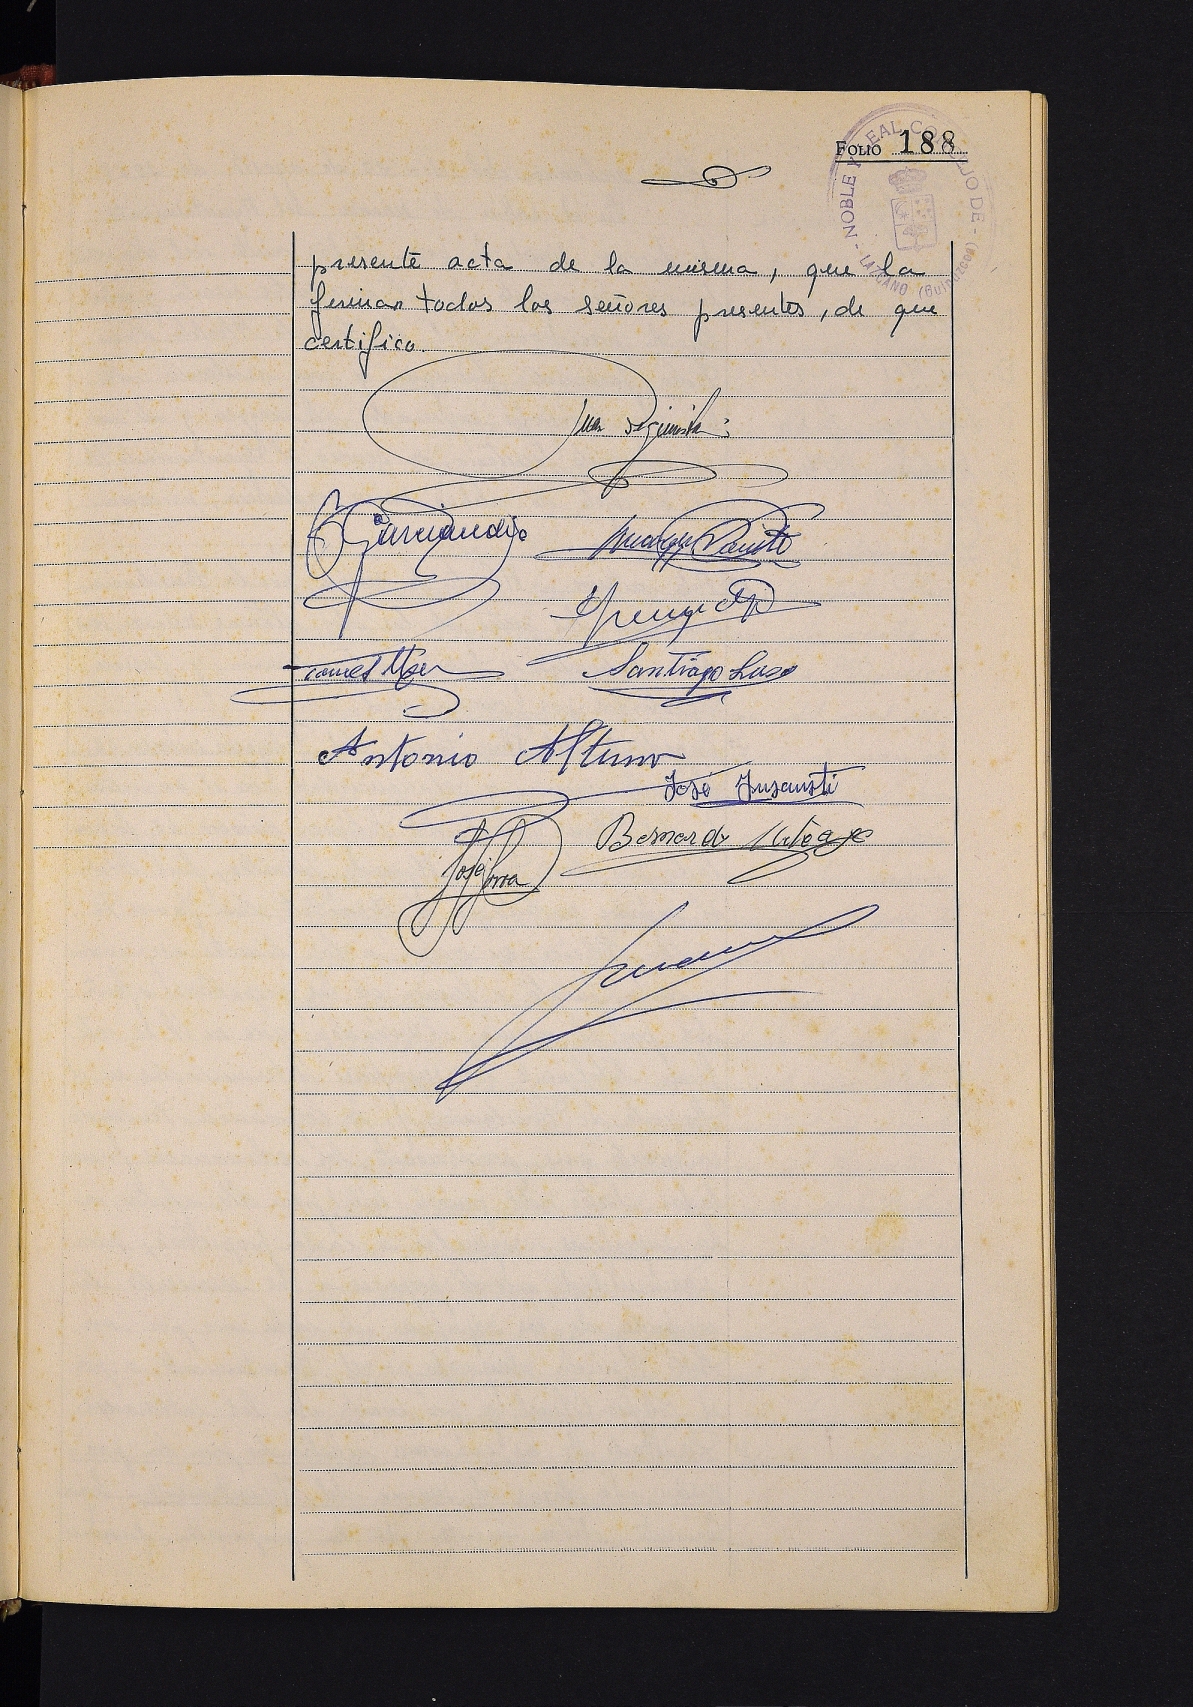 FOLIO 188
NOBLE Y REAL CONCEJO DE
LAZCANO (Guipuzcoa)
presente acta de la misma, que la
firman todos los señores presentes, de que
certifico.
Juan
Santiago Lasa
Antonio Altuna
José Insausti
Bernardo
José